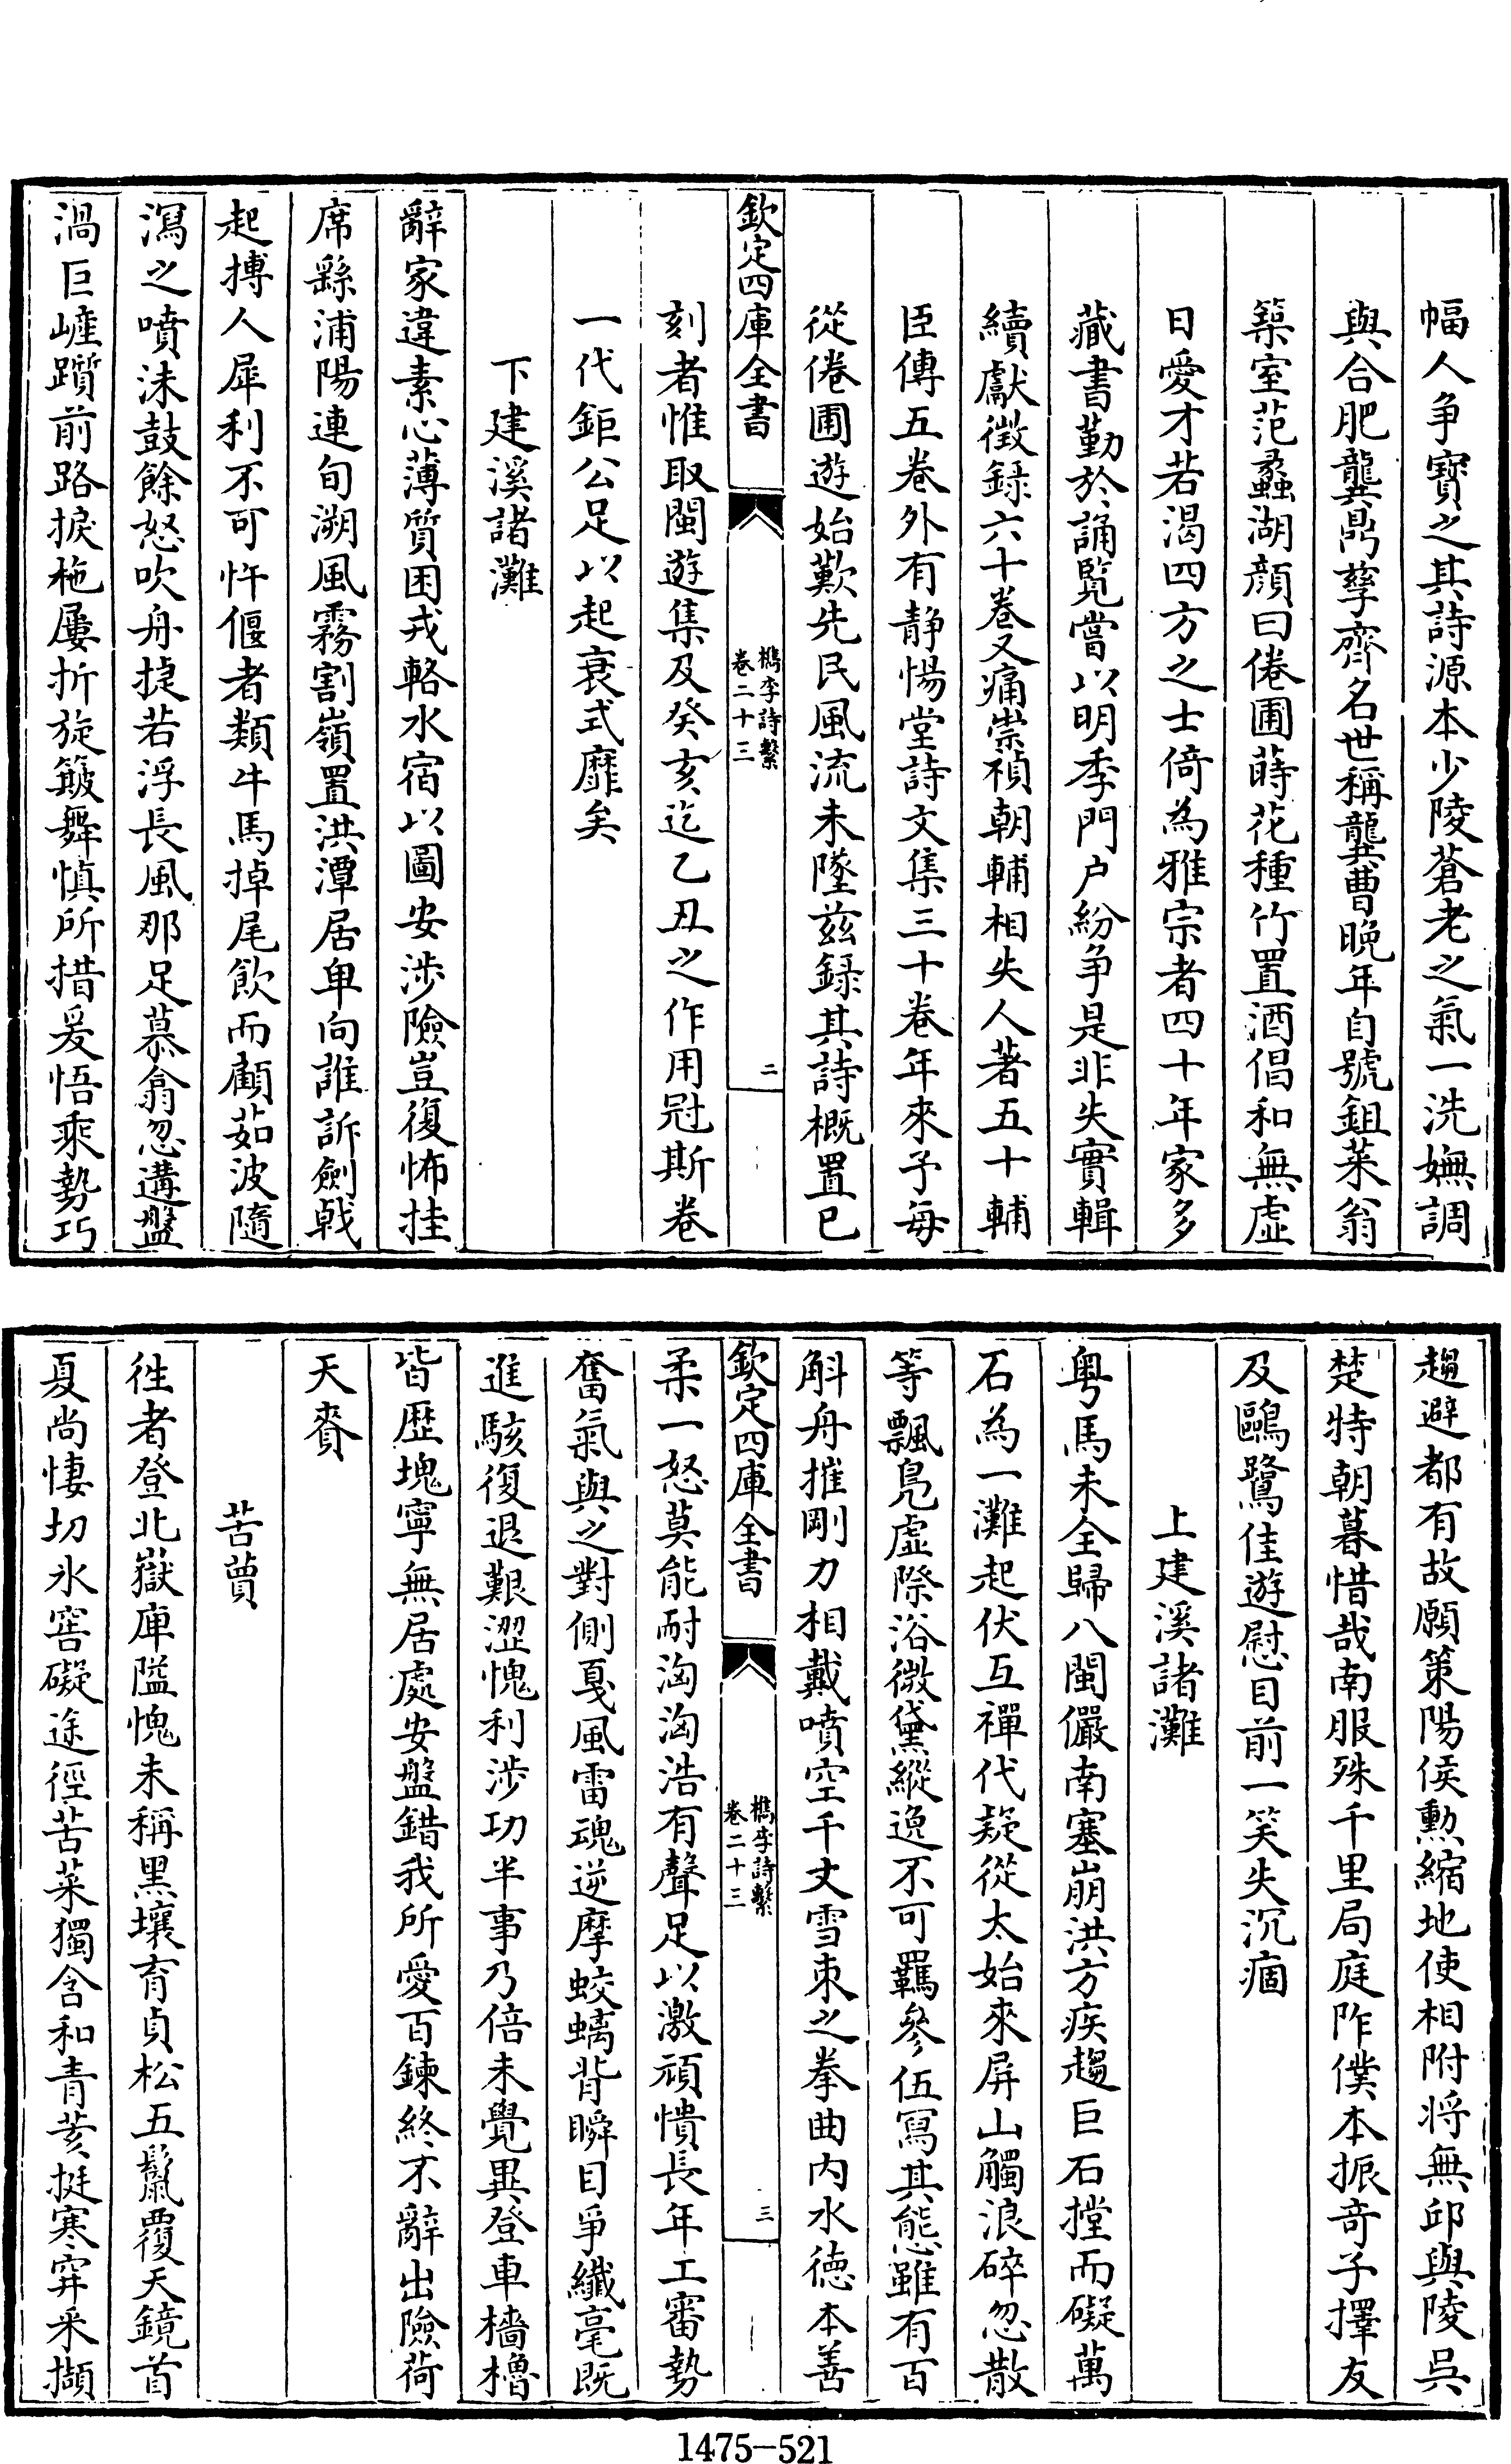 幅人争寶之其詩源本少陵蒼老之氣一洗嫵調
與合肥龔鼎孳齊名世稱龔曹晚年自號鉏菜翁
築室范蠡湖顔曰倦圃蒔花種竹置酒倡和無虛
日愛才若渴四方之士倚為雅宗者四十年家多
藏書勤於誦覧嘗以明季門户紛争是非失實輯
續獻徵録六十卷又痛崇禎朝輔相失人著五十輔
臣傳五卷外有静惕堂詩文集三十卷年來予每
從倦圃遊始歎先民風流未墜兹録其詩概置已
欽定四庫全書
檇李詩繫
卷二十三
二
刻者惟取閩遊集及癸亥迄乙丑之作用冠斯卷
一代鉅公足以起衰式靡矣
下建溪諸灘
辭家違素心薄質困戎輅水宿以圖安涉險豈復怖挂
席繇浦陽連旬溯風霧割嶺置洪潭居卑向誰訴劍戟
起搏人犀利不可忤偃者類牛馬掉尾飲而顧茹波隨
瀉之噴沫鼓餘怒吹舟捷若浮長風那足慕翕忽遘盤
渦巨嵟躓前路捩柂屢折旋簸舞慎所措爰悟乘勢巧
趨避都有故願策陽侯勲縮地使相附将無邱與陵吳
楚特朝暮惜哉南服殊千里局庭阼僕本振奇子擇友
及鷗鷺佳遊慰目前一笑失沉痼
上建溪諸灘
粤馬未全歸八閩儼南塞崩洪方疾趨巨石摚而礙萬
石為一灘起伏互禪代疑從太始來屏山觸浪碎忽散
等飄鳬虛際浴微黛縱逸不可羈參伍寫其態雖有百
斛舟摧剛力相戴噴空千丈雪束之拳曲内水德本善
欽定四庫全書
檇李詩繫
卷二十三
三
柔一怒莫能耐洶洶浩有聲足以激頑憒長年工審勢
奮氣與之對側戛風雷魂逆摩蛟螭背瞬目爭纖毫既
進駭復退艱澀愧利涉功半事乃倍未覺異登車檣櫓
皆歴塊寧無居處安盤錯我所愛百鍊終不辭出險荷
天賚
苦蕒
徃者登北嶽庳隘愧未稱黑壤育貞松五鬛覆天鏡首
夏尚悽切氷窖礙途徑苦菜獨含和青荄挺寒穽采擷
1475—521